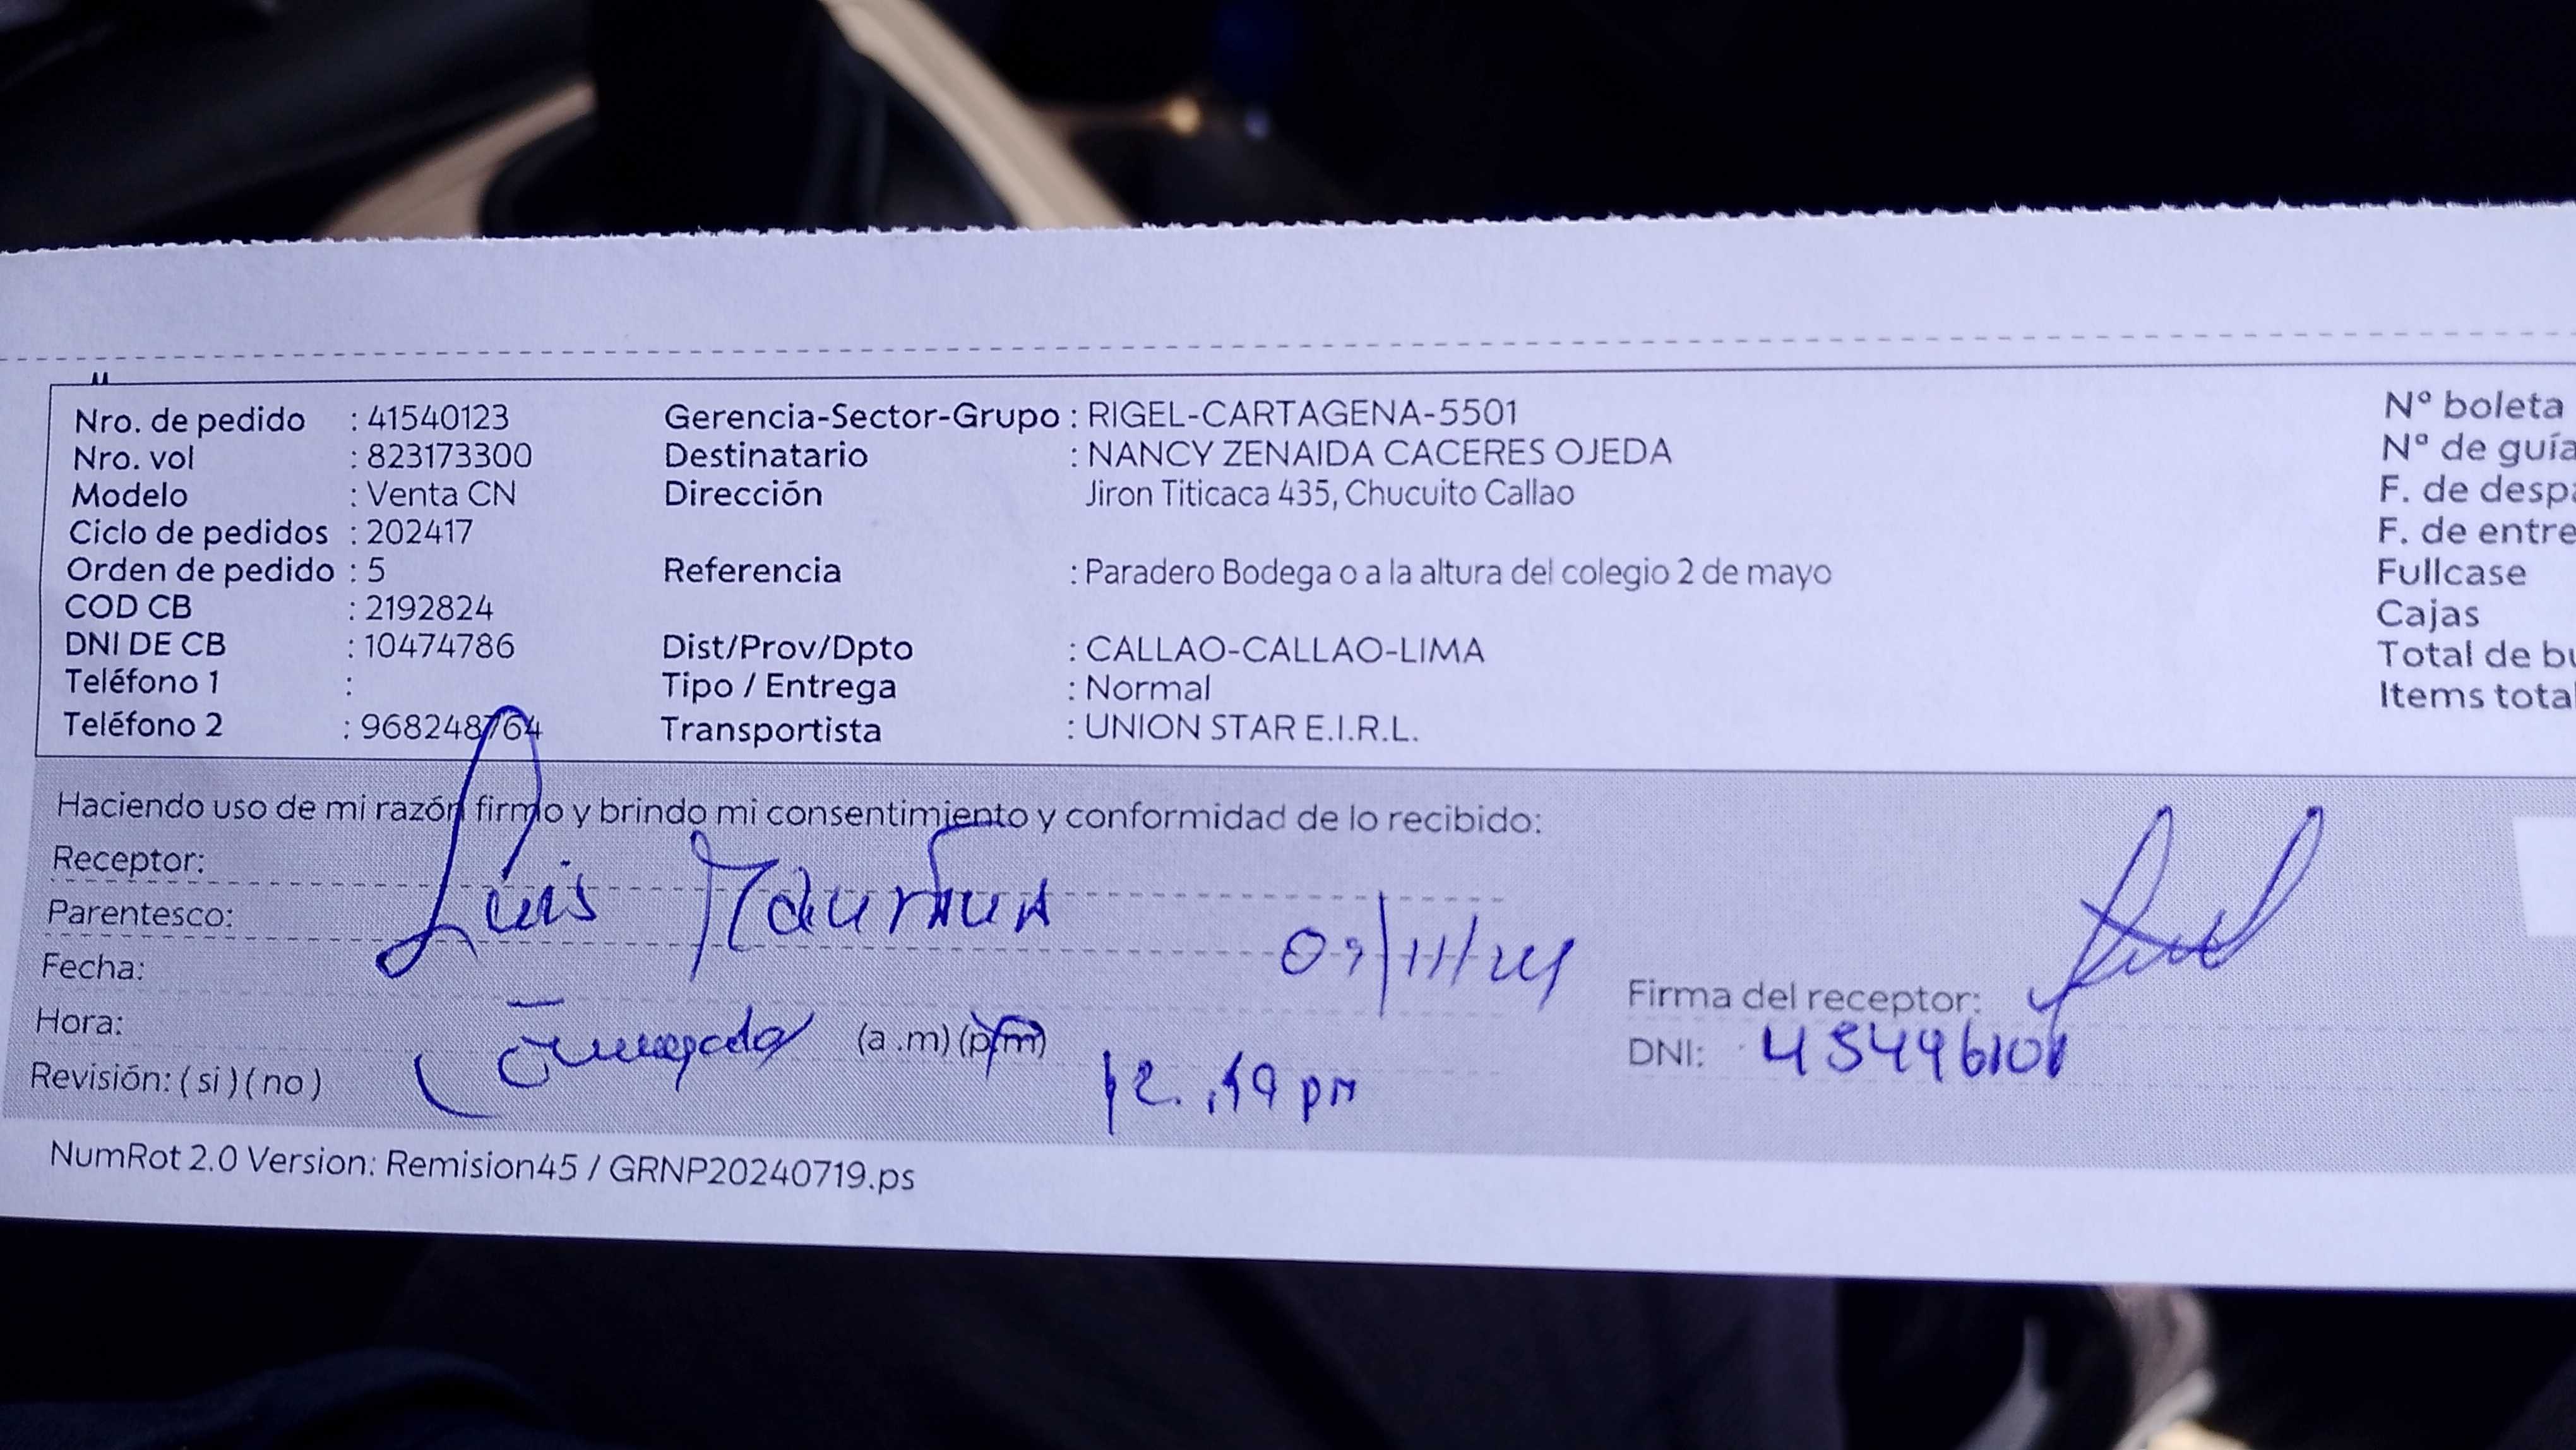 Nro. de pedido : 41540123 Gerencia-Sector-Grupo : RIGEL-CARTAGENA-5501 Nº boleta
Nro. vol : 823173300 Destinatario : NANCY ZENAIDA CACERES OJEDA Nº de guía
Modelo : Venta CN Dirección Jiron Titicaca 435, Chucuito Callao F. de despa
Ciclo de pedidos : 202417 F. de entre
Orden de pedido : 5 Referencia : Paradero Bodega o a la altura del colegio 2 de mayo Fullcase
COD CB : 2192824 Cajas
DNI DE CB : 10474786 Dist/Prov/Dpto : CALLAO-CALLAO-LIMA Total de bu
Teléfono 1 : Tipo / Entrega : Normal Items total
Teléfono 2 : 968248764 Transportista : UNION STAR E.I.R.L.
Haciendo uso de mi razón firmo y brindo mi consentimiento y conformidad de lo recibido:
Receptor:
Luis
Parentesco:
Fecha: /11/24
Firma del receptor:
Hora: (a .m) (p.m)
DNI:
12.49 pm
Revisión: ( si ) ( no )
NumRot 2.0 Version: Remision45 / GRNP20240719.ps